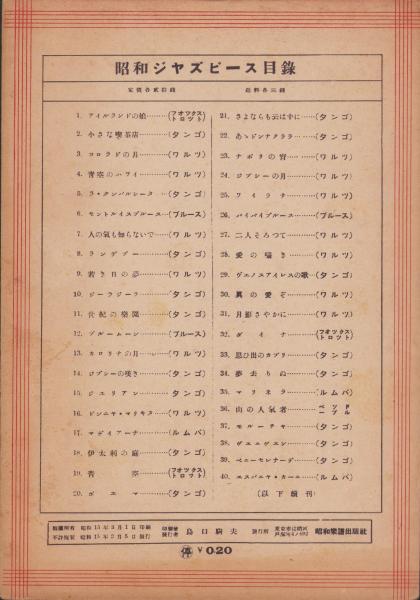 昭和ジヤズピース目錄
定價各貳拾錢 送料各三錢
1. アイルランドの娘………(フオツクストロツト)
2. 小さな喫茶店…………(タンゴ)
3. コロラドの月…………(ワルツ)
4. 青空のハワイ…………(ワルツ)
5. ラ・クンパルシータ…(タンゴ)
6. セントルイスブルース…(ブルース)
7. 人の氣も知らないで…(ワルツ)
8. ランデブー……………(タンゴ)
9. 若き日の夢……………(ワルツ)
10. ジーラジーラ…………(タンゴ)
11. 世紀の樂園……………(タンゴ)
12. ブルームーン…………(ブルース)
13. カロリナの月…………(ワルツ)
14. ジプシーの嘆き………(タンゴ)
15. ジエリアン……………(タンゴ)
16. ドンニヤ・マリキヌ…(ワルツ)
17. マデイアーナ…………(ルムバ)
18. 伊太利の庭……………(タンゴ)
19. 青空……………(フオツクストロツト)
20. ポエマ…………(タンゴ)
21. さよならも云はずに……(タンゴ)
22. あゝドンナクララ……(タンゴ)
23. ナポリの宵……………(ワルツ)
24. ジプシーの月…………(ワルツ)
25. ワイラナ………………(ワルツ)
26. バイバイブルース……(ブルース)
27. 二人そろつて…………(ワルツ)
28. 愛の囁き………………(ワルツ)
29. ヴエノスアイレスの歌…(タンゴ)
30. 眞の愛ぞ………………(ワルツ)
31. 月影さやかに…………(ワルツ)
32. ダイナ…………(フオツクストロツト)
33. 思ひ出のカプリ………(タンゴ)
34. 夢去りぬ………………(タンゴ)
35. マリネラ………………(ルムバ)
36. 山の人氣者
37. モルーチヤ……………(タンゴ)
38. ヴエニヴエン…………(タンゴ)
39. ペニーセレナーデ……(タンゴ)
40. エスパニヤ・カーニ…(ルムバ)
(以下續刊)
版權所有 昭和15年3月1日印刷
不許複製 昭和15年3月5日發行
印刷兼發行者 島口駒夫
發行所 昭和樂譜出版社
¥0.20